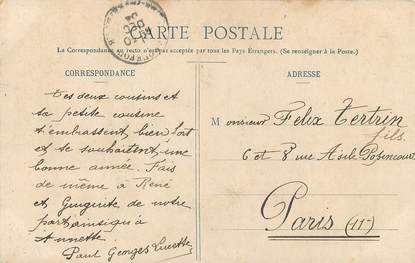 CARTE POSTALE
La Correspondance au recto n'est pas acceptée par tous les Pays Étrangers. (Se renseigner à la Poste.)
CORRESPONDANCE
Tes deux cousins et
ta petite cousine
t'embrassent bien fort
et te souhaitent une
bonne année. Fais
de même à René
et Guiguite de notre
part ainsi qu'à
Annette.
Paul Georges Lucette
ADRESSE
Monsieur Felix Tertrin
fils.
6 et 8 rue Asile Popincourt
Paris (11e)